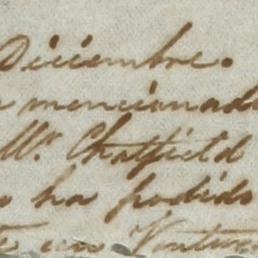 Diciembre.
mencionad
Mr. Chatfield
ha podido
en Ventur